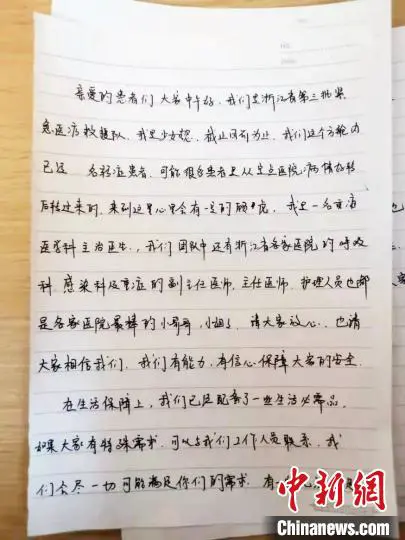 亲爱的患者们大家中午好,我们是浙江省第三批紧
急医疗救援队,我是少女穗,截止目前为止,我们这个方舱内
已经 名轻症患者,可能很多患者是从定点医院病情好转
后转过来的,来到这里心里会有一定的顾虑,我是一名重症
医学科主治医生,我们团队中还有浙江省各家医院的呼吸
科 感染科及重症的副主任医师,主任医师,护理人员也都
是各家医院最棒的小哥哥,小姐姐,请大家放心,也请
大家相信我们,我们有能力,有信心保障大家的安全.
在生活保障上,我们已经配备了一些生活必需品,
如果大家有特殊需求,可以与我们工作人员联系,我
们会尽一切可能满足你们的需求,有一
中新网
Chinanews.com